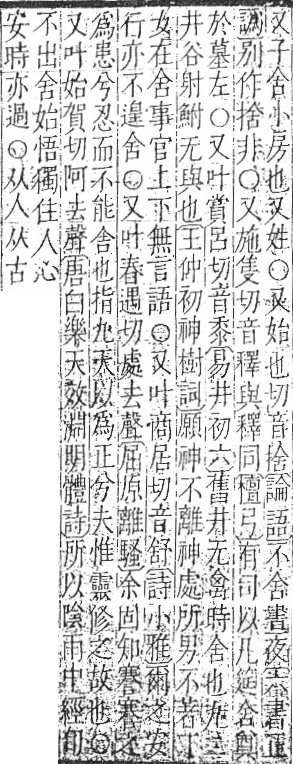 又子舍小房也又姓○又始也切音捨論語不舍晝夜六書正
譌別作捨非○又施隻切音釋與釋同檀弓有司以几筵舍奠
於墓左○又叶賞呂切音黍易井初六舊井无禽時舍也九二
井谷射鮒无與也王仲初神樹詞願神不離神處所男不著丁
女在舍事官上下無言語○又叶商居切音舒詩小雅爾之安
行亦不遑舍○又叶春遇切處去聲屈原離騷余固知謇謇之
為患兮忍而不能舍也指九天以為正兮夫惟靈修之故也○
又叶始賀切阿去聲唐白樂天效淵明體詩所以陰雨中經旬
不出舍始悟獨住人心
安時亦過○从人从古